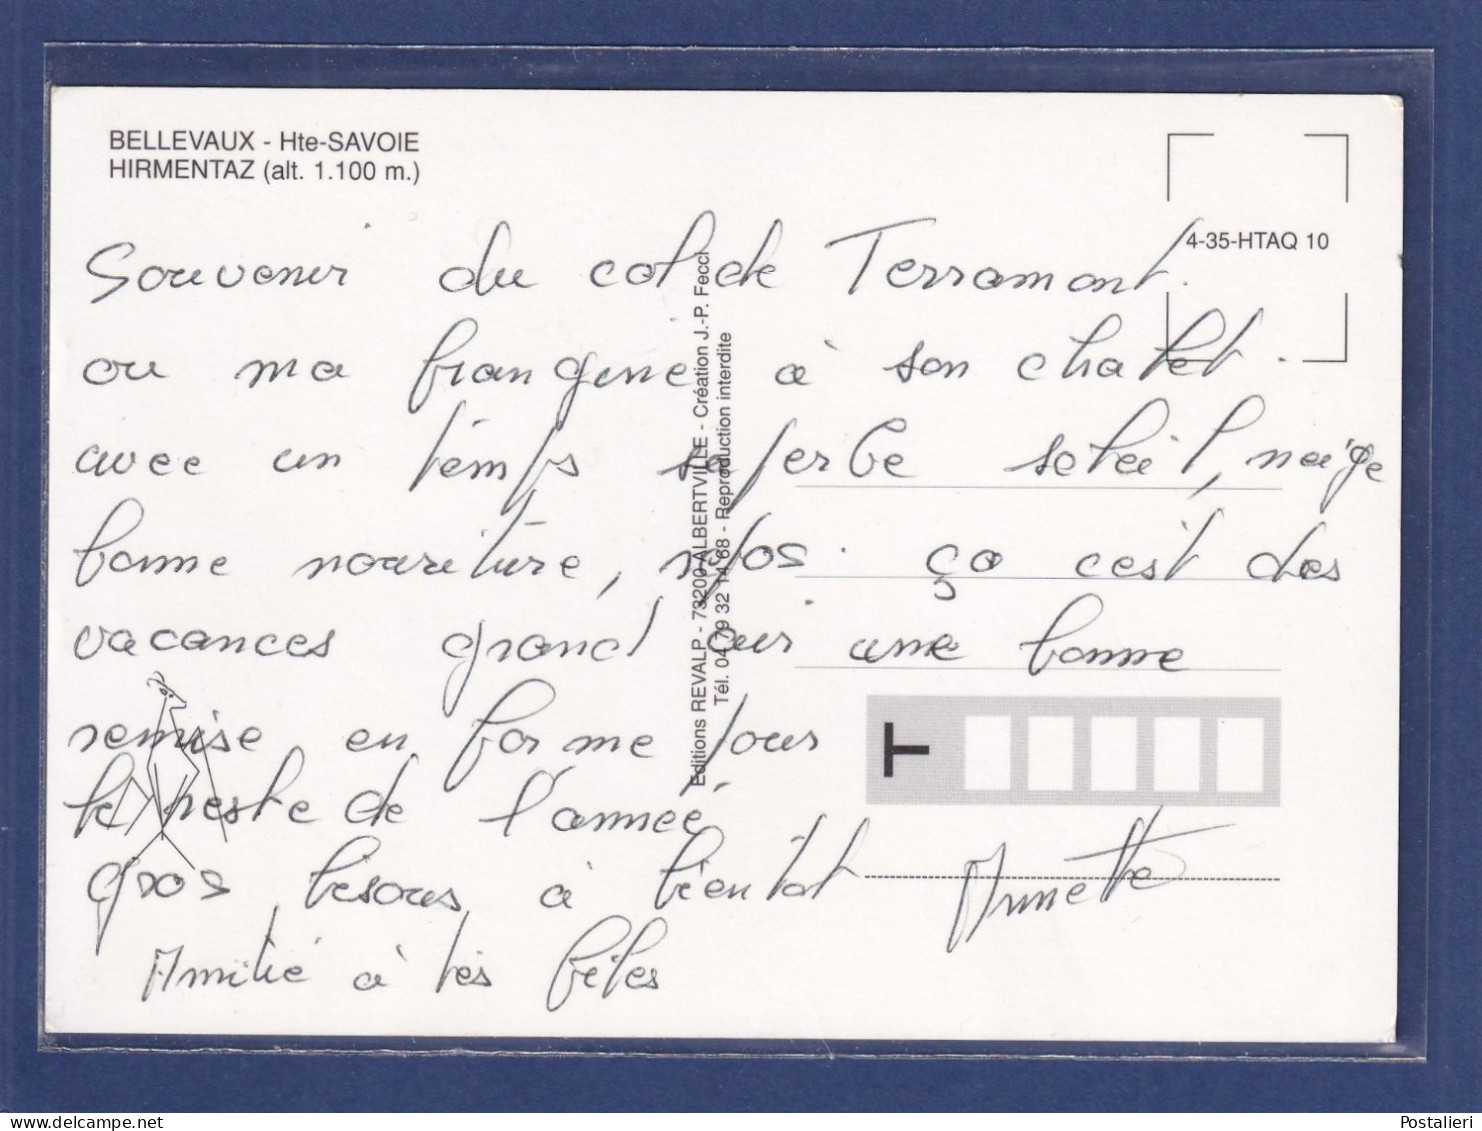 BELLEVAUX - Hte-SAVOIE
HIRMENTAZ (alt. 1.100 m.)
4-35-HTAQ 10
Souvenir du col de Terramont.
ou ma frangine à son chalet.
avec un temps superbe soleil, neige
bonne nouriture, repos. ça c'est des
vacances grand air une bonne
remise en forme pour
le reste de l'année.
gros bisous à bientot Annette
Amitié à tes bêtes
Editions REVALP - 73200 ALBERTVILLE - Création J.-P. Fecci
Tél. 04 79 32 14 68 - Reproduction interdite
T
delcampe.net
Postalieri